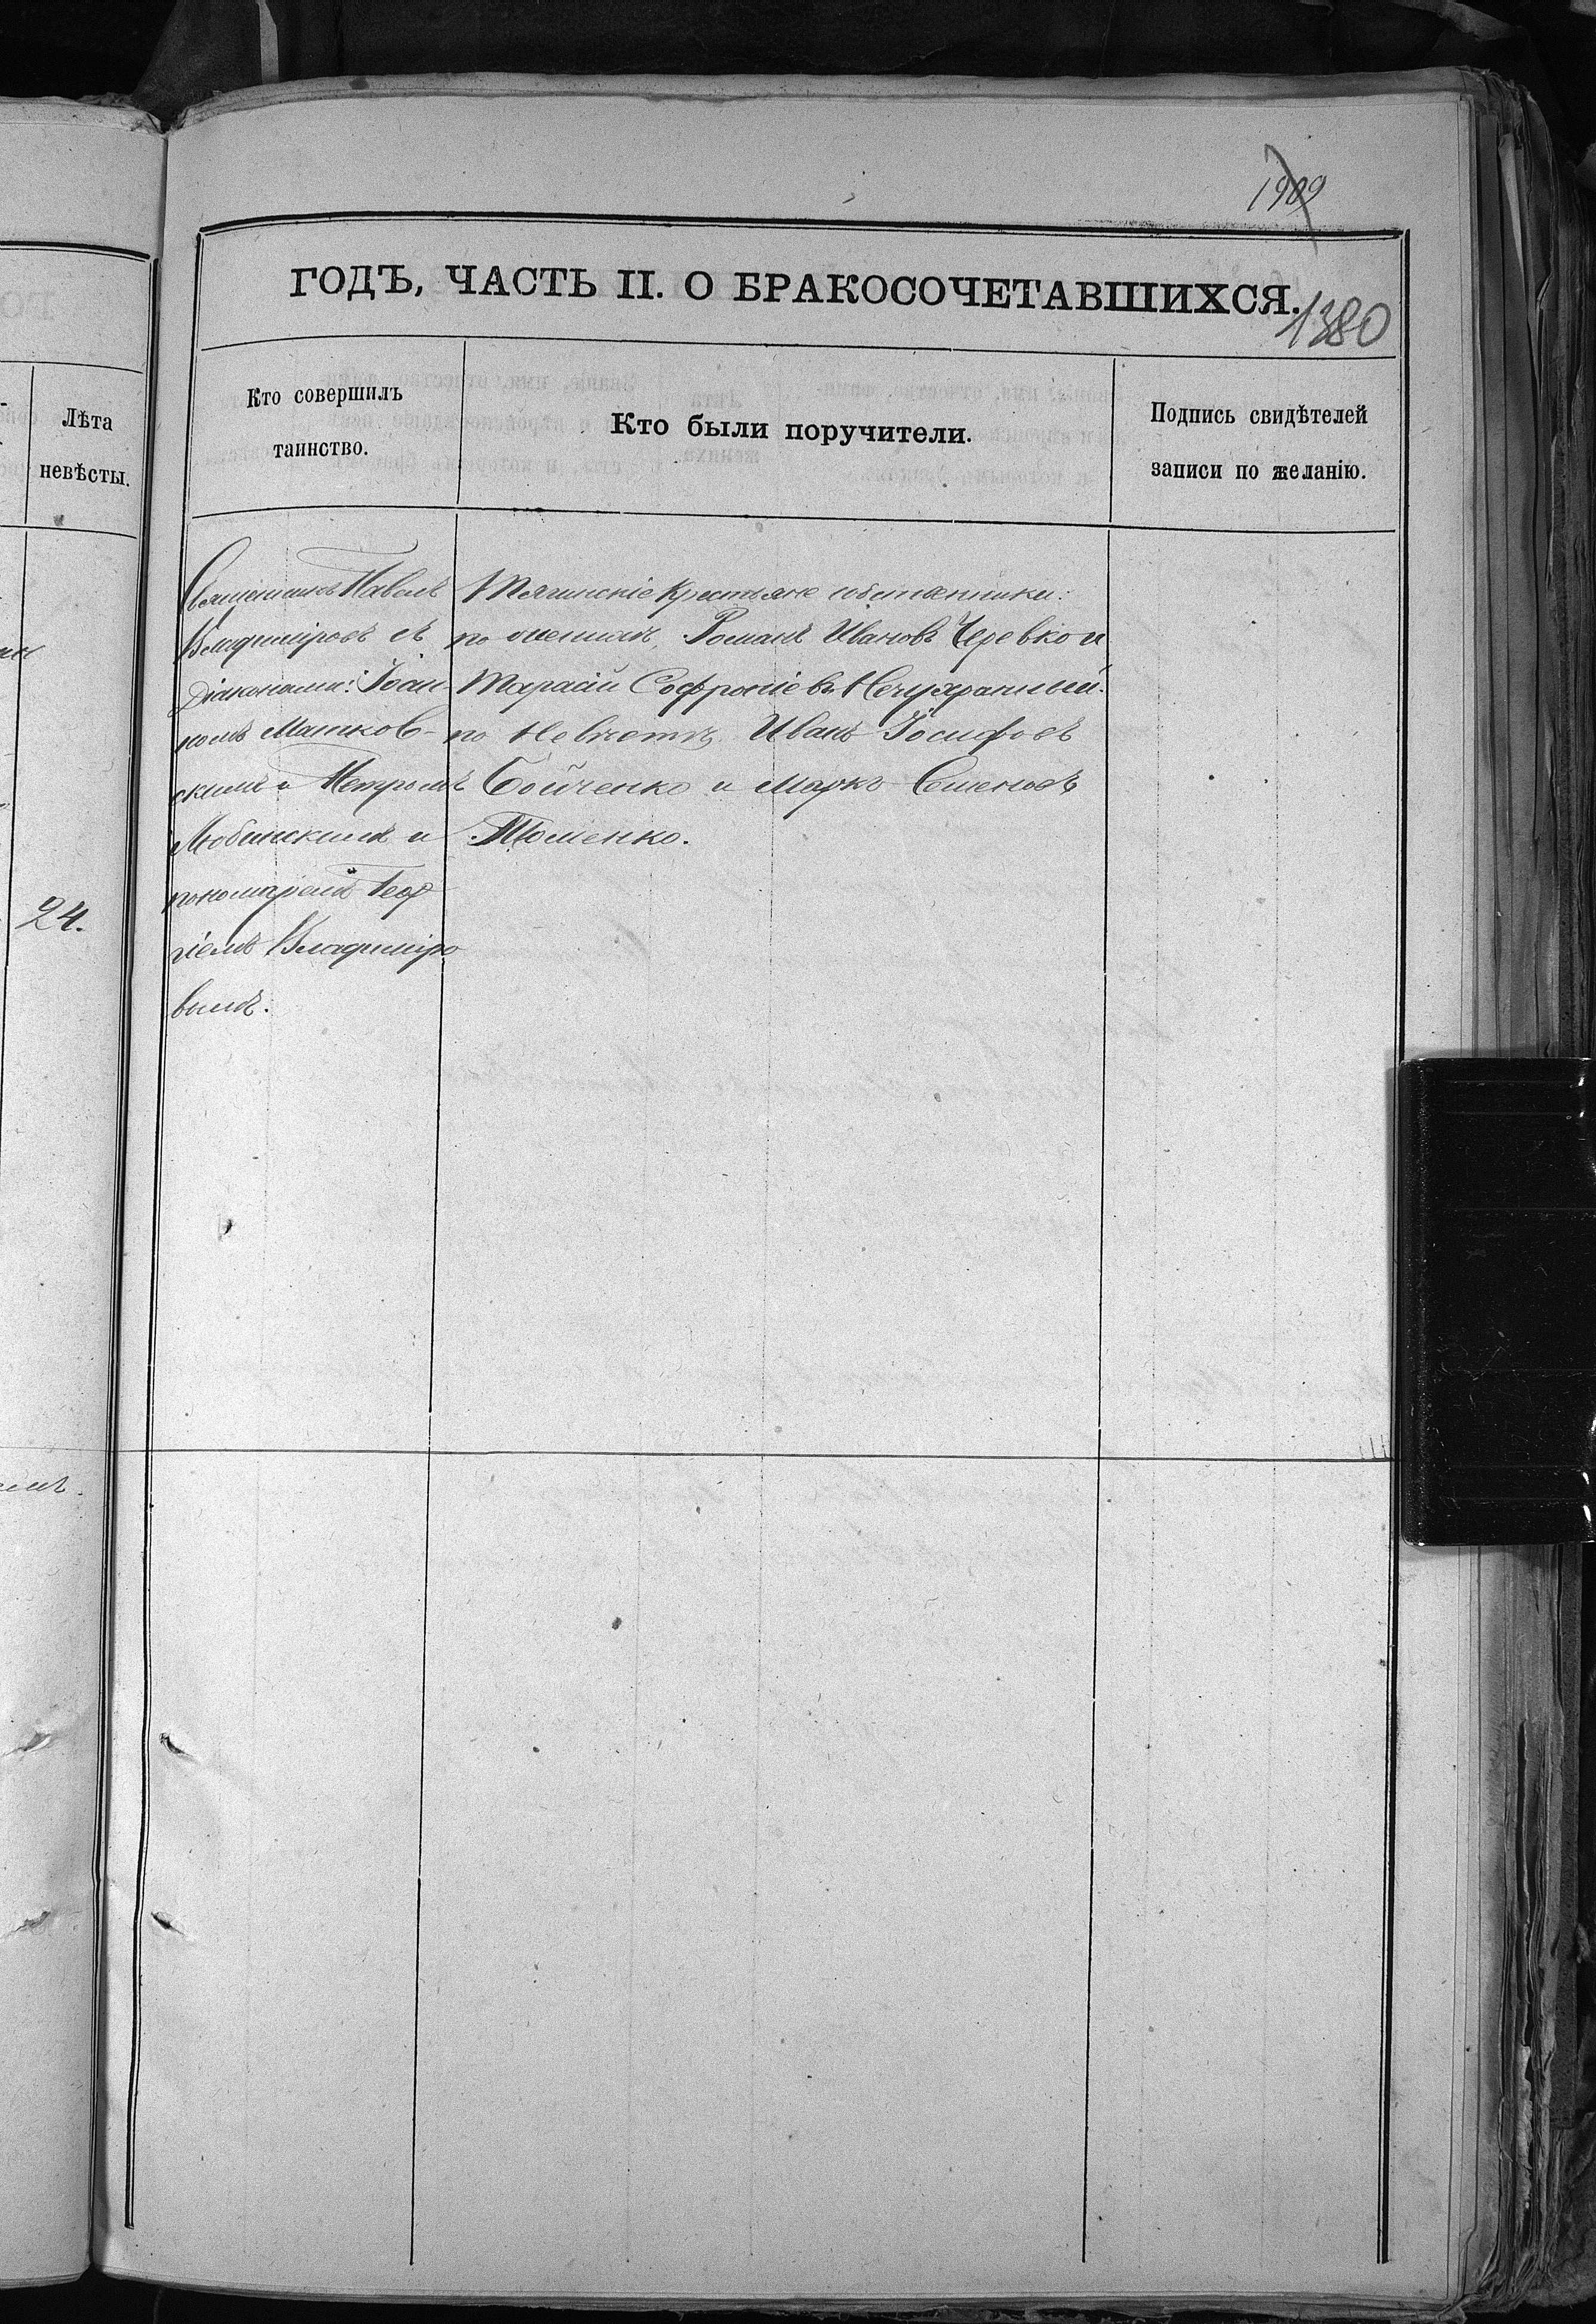 1909
ГОДЪ, ЧАСТЬ II. О БРАКОСОЧЕТАВШИХСЯ.
1380
Лѣта
невѣсты.
Кто совершилъ
таинство.
Кто были поручители.
Подпись свидѣтелей
записи по желанію.
24.
Священникъ Павелъ
Владиміровъ съ
діаконами: Іоан-
номъ Матков-
скимъ и Петромъ
Любинскимъ и
пономаремъ Геор
гіемъ Владиміро
вымъ.
Тягинскіе крестьяне собственники:
по женихѣ, Романъ Ивановъ Черевко и
Тарасій Софроніевъ Нечухранный.
по невѣстѣ Иванъ Іосифовъ
Бойченко и Марко Семеновъ
Тюменко.